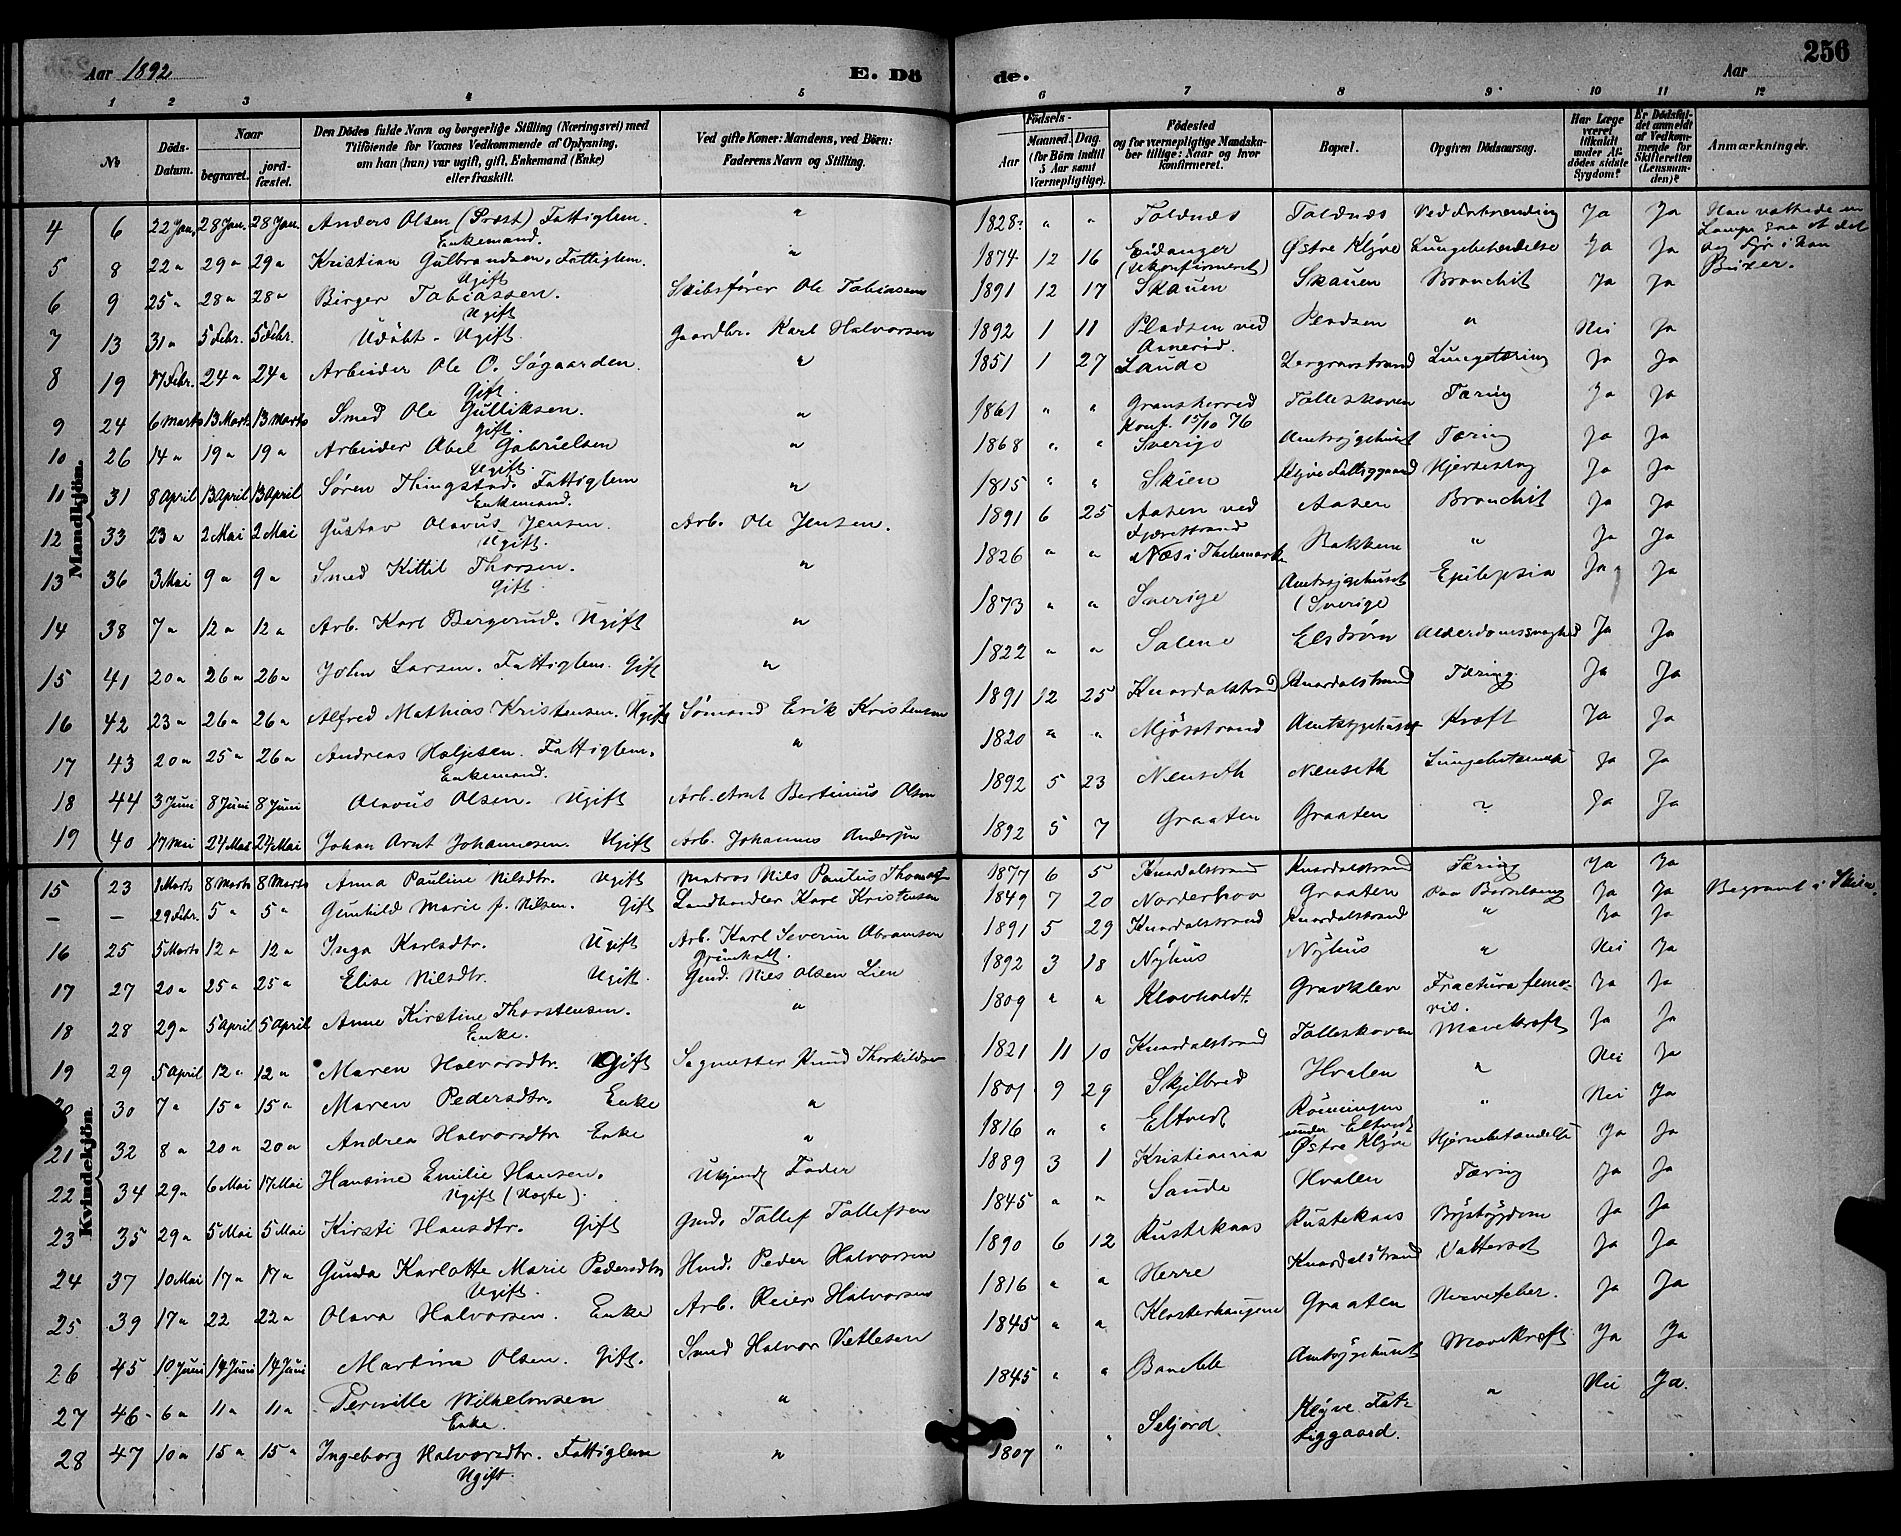 Aar 1892
E. Dö
de.
Aar
256
1 2 3 4 5
6 7 8 9 10 11 12
No
Döds-Datum.
Naar
begravet.
jordfæstet.
Den Dödes fulde Navn og borgerlige Stilling (Næringsvei) med Tilföiende for Voxnes Vedkommende af Oplysning, om han (hun) var ugift, gift, Enkemand (Enke) eller fraskilt.
Ved gifte Koner: Mandens, ved Börn: Faderens Navn og Stilling.
Födsels-
Aar
Maaned. Dag. (for Börn indtil 5 Aar samt Værnepligtige).
Födested og for værnepligtige Mandskaber tillige: Naar og hvor konfirmeret.
Bopæl.
Opgiven Dödsaarsag.
Har Læge været tilkaldt under Afdødes sidste Sygdom?
Er Dödsfaldet anmeldt af Vedkommende for Skifteretten (Lensmanden)?
Anmærkninger.
Mandkjön.
4 6 22 Jan. 28 Jan. 28 Jan. Anders Olsen (Præst) Fattiglem. Enkemand. " 1828 " " Ja Ja
5 8 22 " 29 " 29 " Kristian Gulbrandsen, Fattiglem. Ugift " 1874 12 16 Eidanger (Ukonfirmeret) Østre Klyve Lungebetændelse Ja Ja
6 9 25 " 28 " 28 " Birger Tobiassen. Ugift Skibsfører Ole Tobiassen 1891 12 17 Skauen Skauen Bronchit Ja Ja
7 13 31 " 5 Febr. 5 Febr. Udöbt. Ugift. Gaardbr. Karl Halvorsen 1892 1 11 Pladsen ved Pladsen " Nei Ja
8 19 17 Febr. 24 " 24 " Arbeider Ole O. Søgaarden. Gift. " 1851 1 27 Lungetæring Ja Ja
9 24 6 Marts 13 Marts 13 Marts Smed Ole Gulliksen. Gift. " 1861 " " Gransherred Konf. 15/10 76 Tolleskoven Tæring Ja Ja
10 26 14 " 19 " 19 " Arbeider Abel Gabrielsen Ugift. " 1868 " " Sverige Amtssygehuset Tæring Ja Ja
11 31 8 April 13 April 13 April Søren Thingstad. Fattiglem Enkemand. " 1815 " " Skien Klyve Fattiggaard Hjerteslag Ja Ja
12 33 23 " 2 Mai 2 Mai Gustav Olavus Jensen. Ugift. Arb. Ole Jensen. 1891 6 25 Aasen ved Aasen Bronchit Ja Ja
13 36 3 Mai 9 " 9 " Smed Kittil Thorsen. Gift. " 1826 " " Næs i Thelemark Bakken " Ja Ja
14 38 7 " 12 " 12 " Arb. Karl Bergerud. Ugift " 1873 " " Sverige Amtssygehuset (Sverige Epilepsia Ja Ja
15 41 20 " 26 " 26 " John Larsen. Fattiglem. Gift " 1822 " " Alderdomssvaghed Ja Ja
16 42 23 " 26 " 26 " Alfred Mathias Kristensen. Ugift Sømand Erik Kristensen 1891 12 25 Knardalstrand Knardalstrand Tæring Ja Ja
17 43 20 " 25 " 26 " Andreas Holjesen. Fattiglem. Enkemand. " 1820 " " Mjösstrand Amtssygehuset Kræft Ja Ja
18 44 3 Juni 8 Juni 8 Juni Olavus Olsen. Ugift Arb. Arnt Bertinius Olsen 1892 5 23 Nenseth Nenseth Lungebetændelse Ja Ja
19 40 17 Mai 24 Mai 24 Mai Johan Arnt Johannesen. Ugift Arb. Johannes Andersen 1892 5 7 Graaten Graaten ? Ja Ja
Kvindekjön.
15 23 1 Marts 8 Marts 8 Marts Anna Pauline Nilsdtr. Ugift Matros Nils Paulus Thomassen 1877 6 5 Knardalstrand Knardalstrand Tæring Ja Ja
– – 29 Febr. 5 " 5 " Gunhild Marie f. Nilsen. Gift Landhandler Karl Kristensen 1849 7 20 Norderhov Graaten Paa Barselseng Ja Ja Begravet i Skien.
16 25 5 Marts 12 " 12 " Inga Karlsdtr. Ugift Arb. Karl Severin Abramsen Grimholt. 1891 5 29 Knardalstrand Knardalstrand " Ja Ja
17 27 20 " 25 " 25 " Elise Nilsdtr. Ugift. Gmd. Nils Olsen Lien 1892 3 18 Nyhus Nyhus " Nei Ja
18 28 29 " 5 April 5 April Anne Kirstine Thorstensen. Enke. " 1809 " " Klovholdt Gravklev Fractura femoris. Ja Ja
19 29 5 April 12 " 12 " Maren Halvorsdtr. Ugift Sagmester Knud Thorkildsen 1821 11 10 Knardalstrand Tolleskoven Mavekræft Ja Ja
20 30 7 " 15 " 15 " Maren Pedersdtr. Enke " 1801 9 29 Skjelbred Hvalen " Nei Ja
21 32 8 " 20 " 20 " Andrea Halvorsdtr. Enke " 1816 " " Eltvedt Rönningen under Eltvedt " Nei Ja
22 34 29 " 6 Mai 17 Mai Hansine Emilie Hansen. Ugift (Uægte). Ukjendt Fader 1889 3 1 Kristiania Østre Klyve Hjernebetændelse Ja Ja
23 35 29 " 5 Mai 5 Mai Kirsti Hansdtr. Gift Gmd. Tollef Tollefsen 1845 " " Sande Hvalen Tæring Ja Ja
24 37 10 Mai 17 " 17 " Gunda Karlotte Marie Pedersdtr Ugift. Hmd. Peder Halvorsen 1890 6 12 Rusteknas Rusteknas Brystsygdom Ja Ja
25 39 17 " 22 22 " Olava Halvorsen. Enke Arb. Reier Halvorsen 1816 " " Herre Knardalstrand Vattersot Ja Ja
26 45 10 Juni 14 Juni 14 Juni Martine Olsen. Gift. Smed Halvor Vetlesen 1845 " " Klosterhaugene Graaten Nervefeber. Ja Ja
27 46 6 " 11 " 11 " Pernille Wilhelmsen Enke. " 1845 " " Bamble Amtssygehuset Mavekræft Ja Ja
28 47 10 " 15 " 15 " Ingeborg Halvorsdtr. Fattiglem Ugift. " 1807 " " Seljord. Klyve Fattiggaard. " Nei Ja.